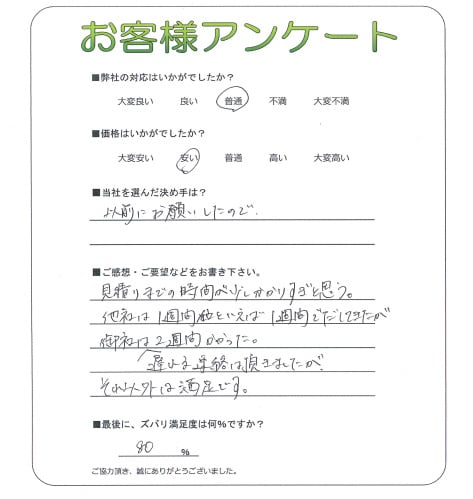 お客様アンケート
■弊社の対応はいかがでしたか？
大変良い 良い 普通 不満 大変不満
■価格はいかがでしたか？
大変安い 安い 普通 高い 大変高い
■当社を選んだ決め手は？
以前にお願いしたので.
■ご感想・ご要望などをお書き下さい。
見積りまでの時間が少しかかりすぎと思う。
他社は1週間後といえば1週間でだしてきたが
御社は2週間かかった。
遅れる連絡は頂きましたが
それ以外は満足です。
■最後に、ズバリ満足度は何％ですか？
80 ％
ご協力頂き、誠にありがとうございました。